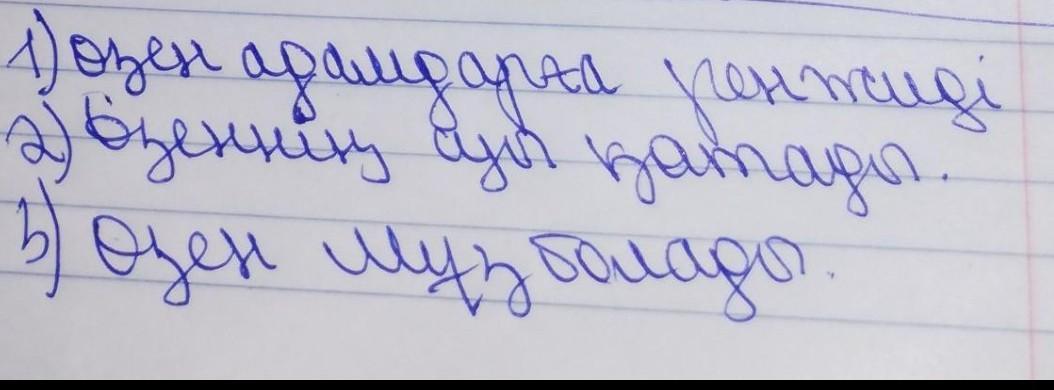 1) Өзен адамдарға ренжиді
2) Өзеннің суы қатады.
3) Өзен мұз болады.